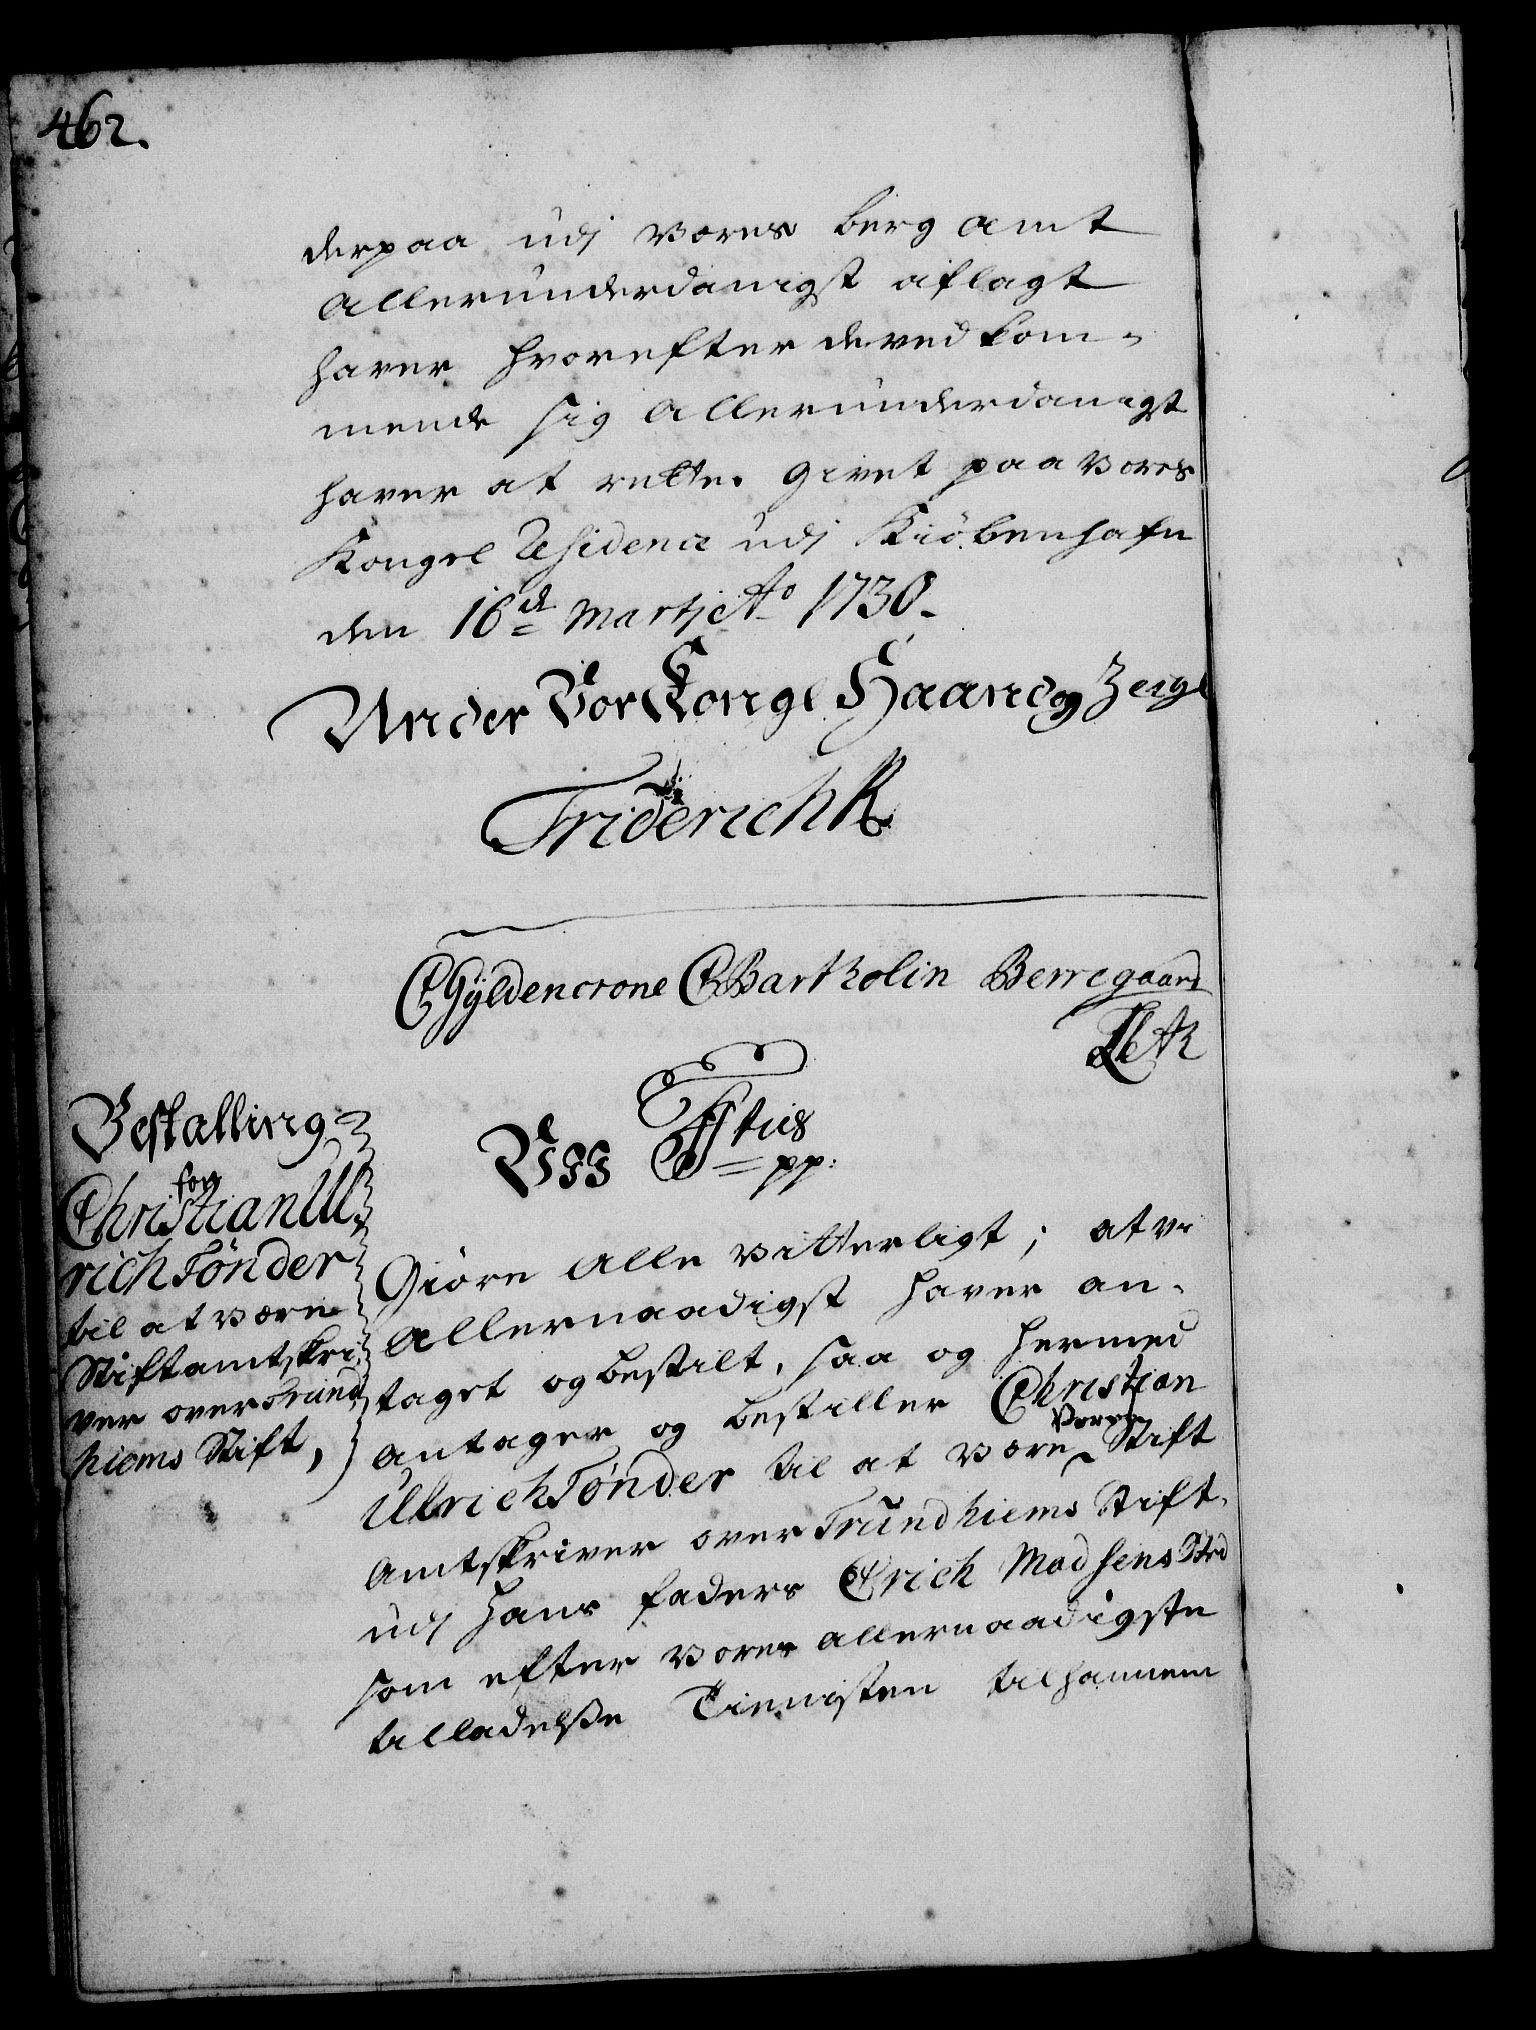 462.
derpaa udj vores berg amt
allerunderdanigst aflagt
haver hvorefter de ved kom-
mende sig allerunderdanigst
haver at rette. Givet paa vores
Kongel Residence udj Kiöbenhafn
den 16de Martj Ao 1730.
Under Vor Kongl Haand og Zeigl
Friderich R
CGÿldencrone CBartholin Berregaard
Bestalling
for
Christian Ul-
rich Tönder
til at være
Stiftamtskri-
ver over Trund
hiems Stift,
V F4tus
pp:
Giöre alle vitterligt; at vi
allernaadigst haver an-
taget og bestilt, saa og hermed
antager og bestiller Christian
Ulrich Tönder til at være Vores Stift
Amtskriver over Trundhiems Stift,
udj hans faders Erich Madsens Sted
som efter vores allernaadigste
tilladelsse Tienisten til hannem